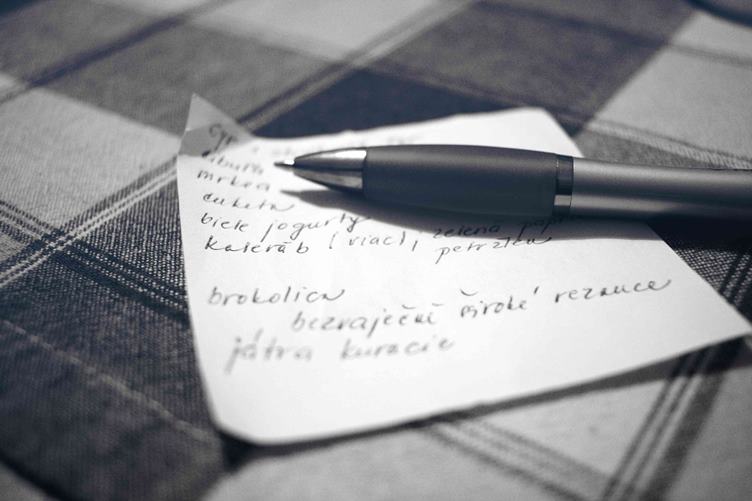 cibuľa
mrkva
cuketa
biele jogurty
kaleráb (viac), zelená
petržlen
brokolica
bezvaječné široké rezance
játra kuracie